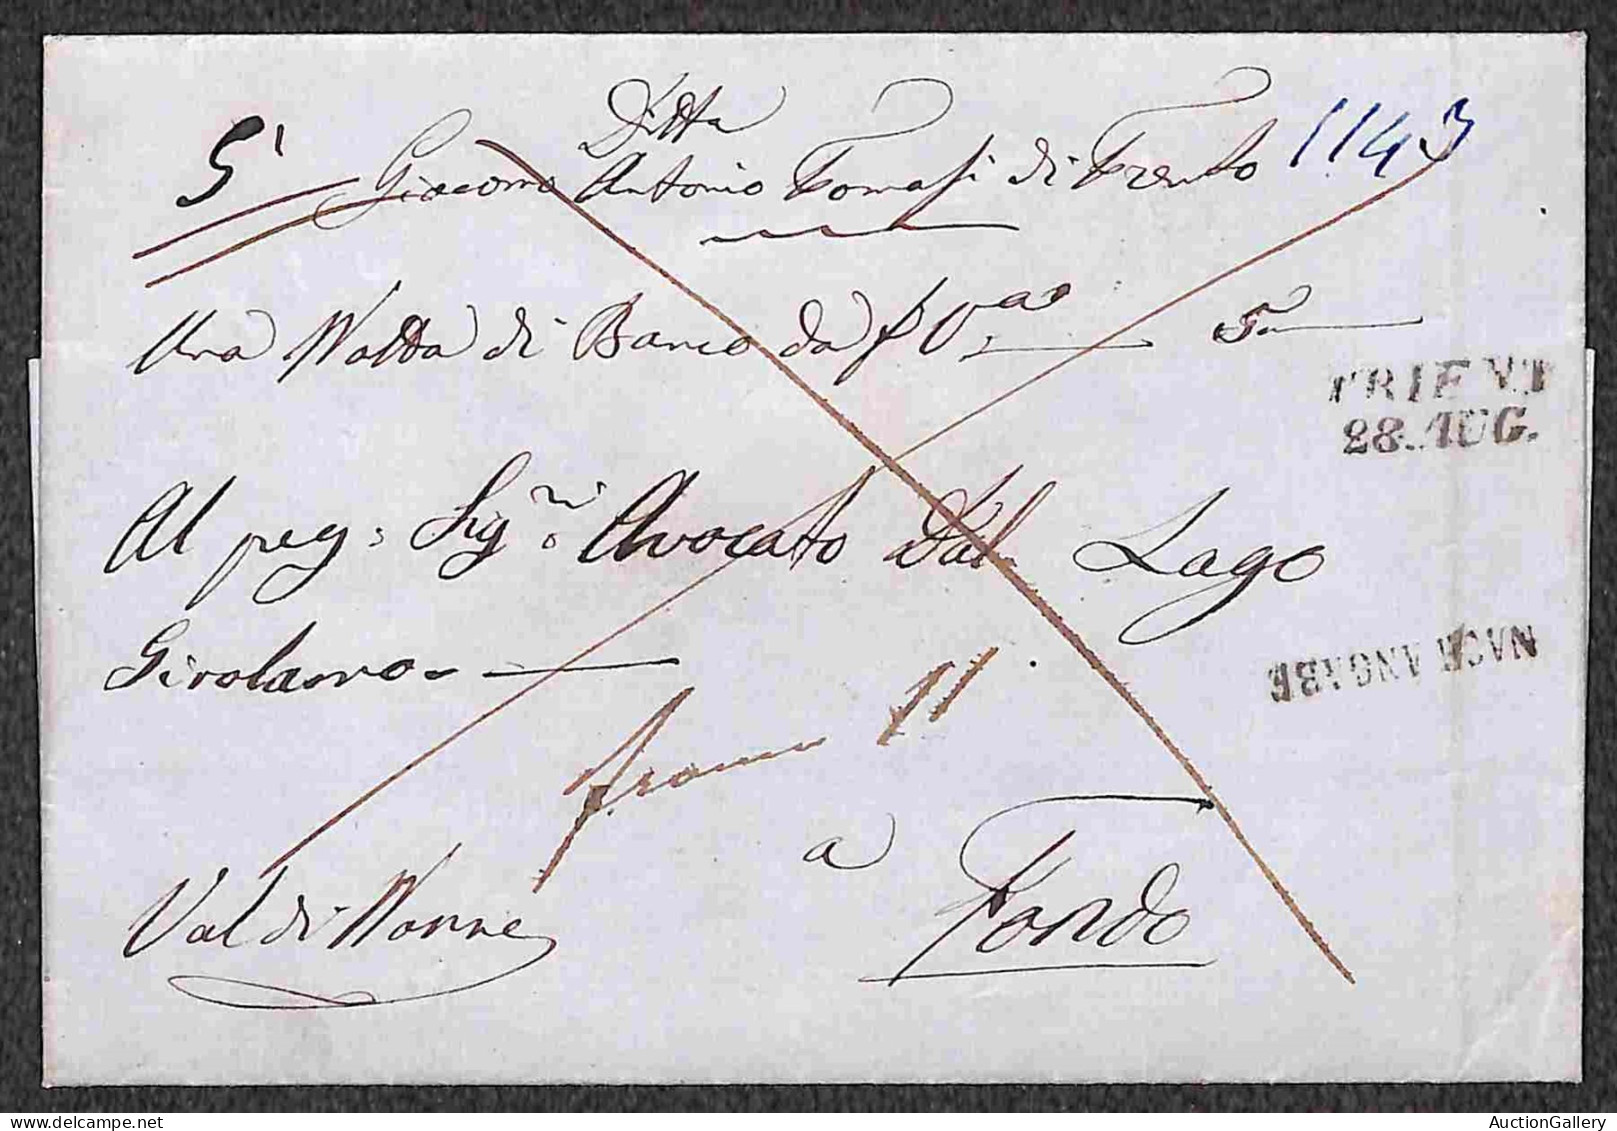 Ditta
5' Giacomo Antonio Tomasi di Trento 1143
Una Notta di Banco da f
TRIENT
28. AUG.
Al preg: Sig.r Avocato Dal Lago
Girolamo
NACH ANGABE
franco 11
a Fondo
Val di Nonne
AuctionGallery